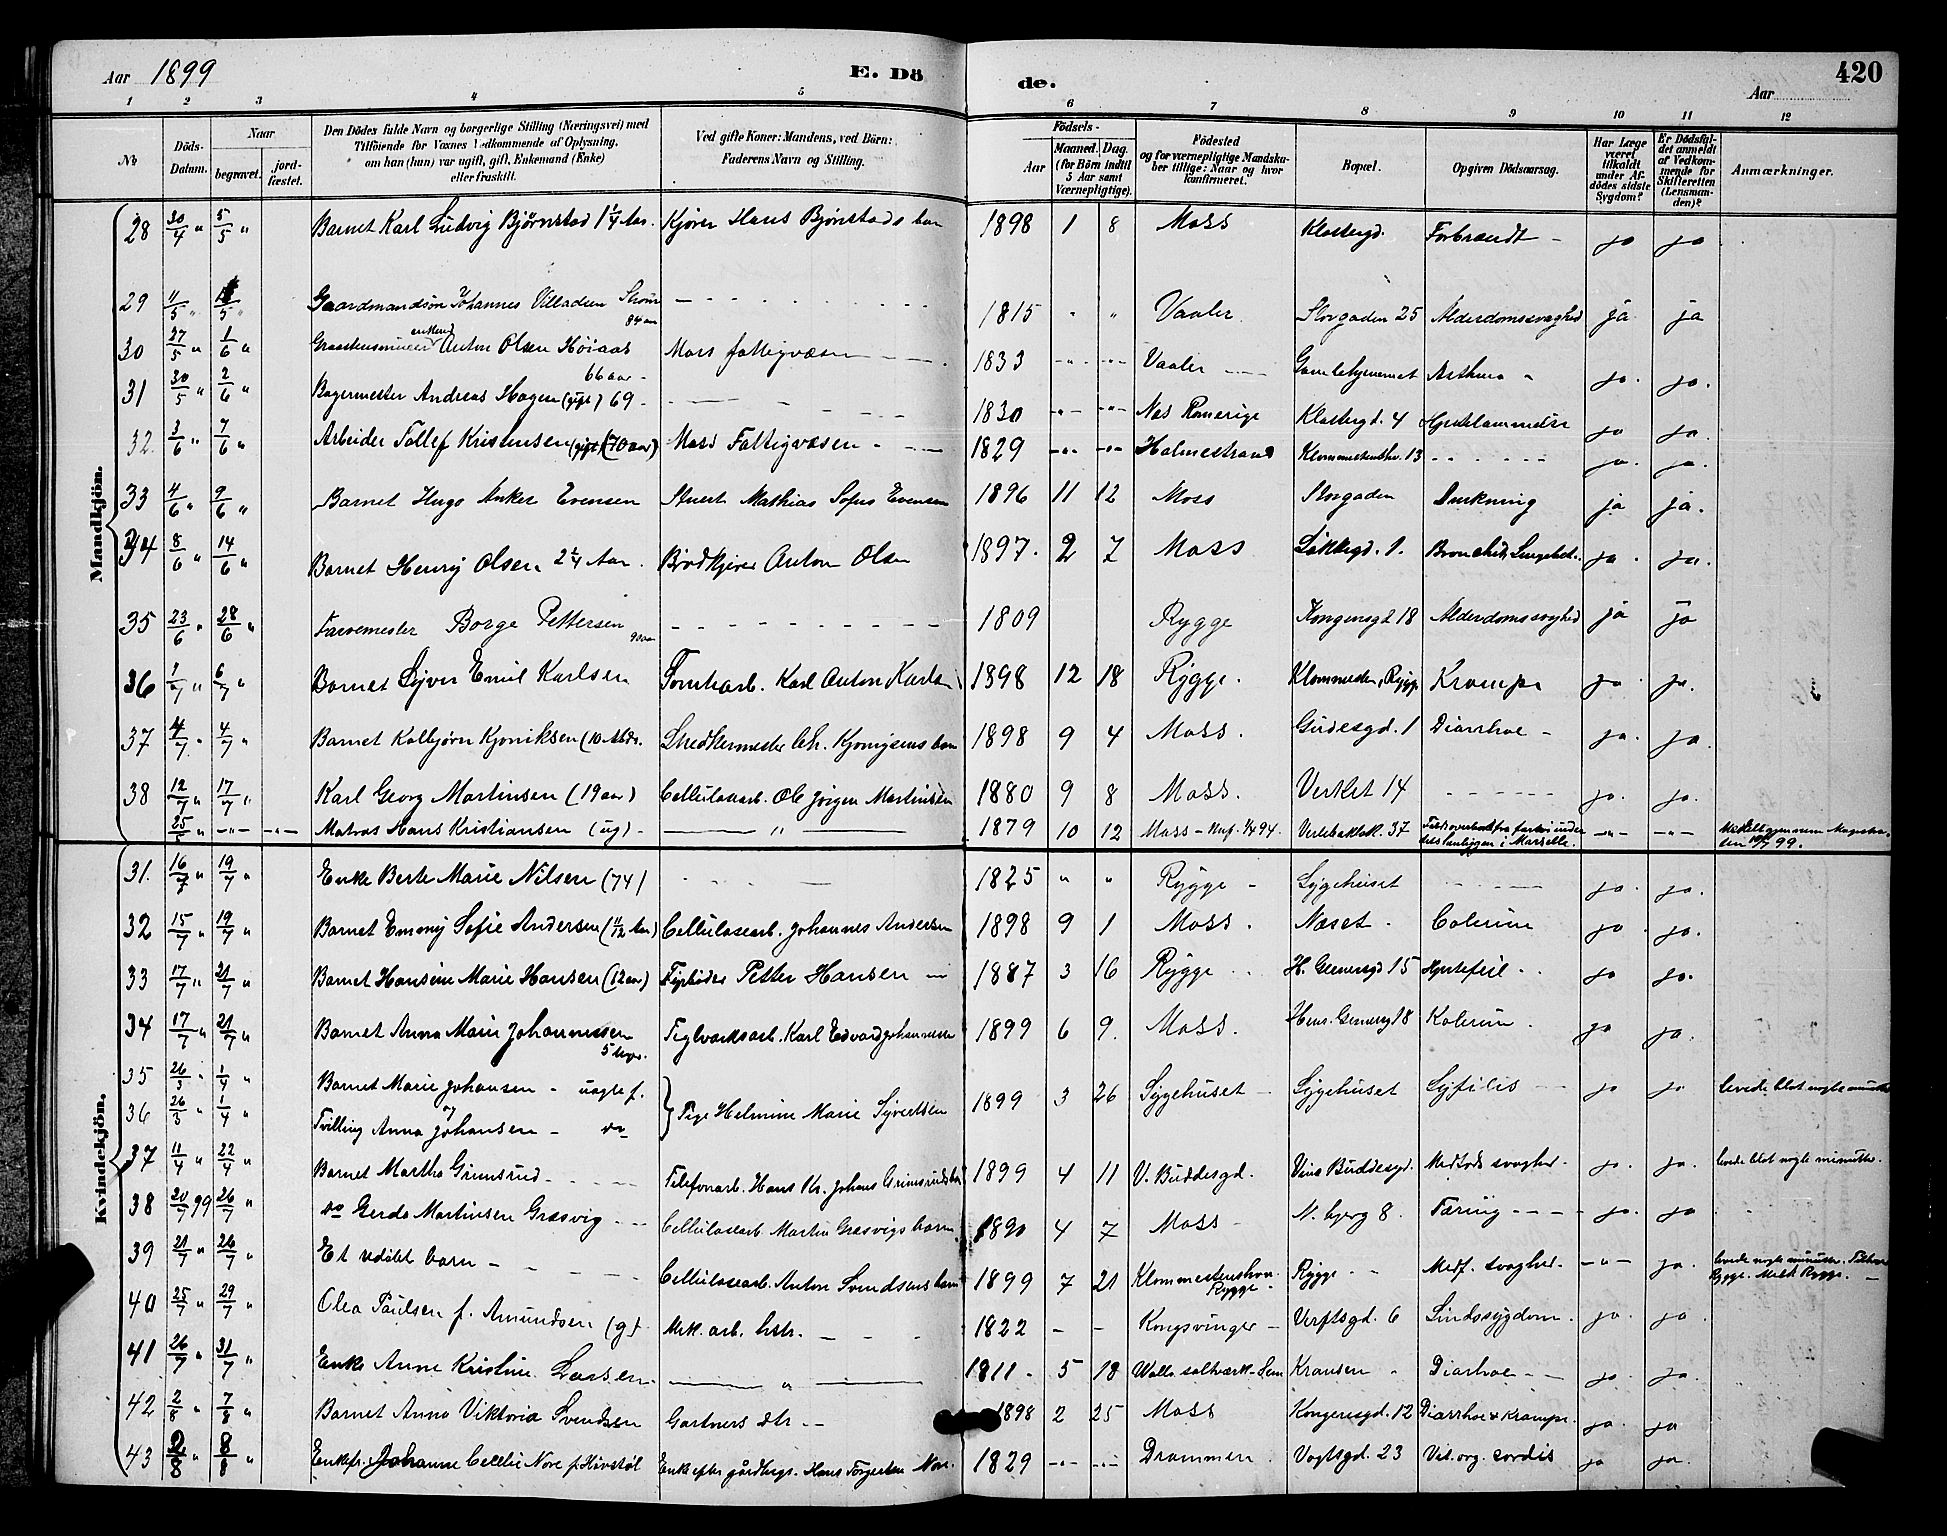 Aar 1899
E. Dö
de.
Aar
420
1 2 3 4 5 6 7 8 9 10 11 12
No
Döds-Datum.
Naar
begravet.
jord-fæstet.
Den Dödes fulde Navn og borgerlige Stilling (Næringsvei) med
Tilföiende for Voxnes Vedkommende af Oplysning,
om han (hun) var ugift, gift, Enkemand (Enke)
eller fraskilt.
Ved gifte Koner: Mandens, ved Börn:
Faderens Navn og Stilling.
Födsels-
Aar
Maaned. Dag.
(for Börn indtil 5 Aar samt Værnepligtige).
Födested
og for værnepligtige Mandska-
ber tillige: Naar og hvor
konfirmeret.
Bopæl.
Opgiven Dödsaarsag.
Har Læge været tilkaldt under Af-dödes sidste Sygdom?
Er Dödsfal-det anmeldt af Vedkom-mende for Skifteretten (Lensman-den)?
Anmærkninger.
Mandkjön.
28 30/4 " 5/5 " Barnet Karl Ludvig Bjørnstad 1 1/4 Aar. Kjører Hans Bjønstads barn 1898 1 8 Moss Klostergd. Forbrændt - ja ja
29 11/5 " Gaardmandsøn Johannes Villadsen Strøm 84 aar 1815 " " Vaaler Storgaden 25 Alderdomssvaghed ja ja
30 27/5 " 1/6 " enkemd Anton Olsen Høiaas 66 aar - Moss fattigvæsen 1833 Vaaler Gamlehjemmet Asthma ja. ja.
31 30/5 " 2/6 " Bagermester Andreas Hagen (gift) 69 - 1830 Nes Romerige Klostergd. 4 ja ja
32. 3/6 " 7/6 " Arbeider Tollef Kristensen (gift) (70 aar) Moss Fattigvæsen 1829 Holmestrand 13 ja. ja.
33 4/6 " 9/6 " Barnet Hugo Anker Evensen Stuert Mathias Sofus Evensen 1896 11 12 Moss Storgaden Drukning ja ja.
34 8/6 " 14/6 " Barnet Henrij Olsen 2 1/4 Aar. Brødkjører Anton Olsen 1897. 2 7 Moss Løkkegd. 1. ja ja.
35 23/6 " 28/6 " Farvemester Borge Pettersen 90 aar 1809 Rygge Kongensgt 18 Alderdomssvaghed ja ja
36 1/7 " 6/7 " Barnet Sijver Emil Karlsen Tomtearb. Karl Anton Karlsen 1898 12 18 Rijgge. Krampe ja. ja.
37 4/7 " 4/7 " Barnet Kolbjørn Kjoniksen (10 Mdr. Snedkermester Chr. barn 1898 9 4 Moss. Gudesgd. 1 Diarrhoe - ja. ja
38 12/7 " 17/7 " Karl Georg Martinsen (19 aar) Cellulosearb. Ole Jørgen Martinsen 1880 9 8 Moss. Verket 14 ja. ja.
25/5 " Matros Hans Kristiansen (ug). 1879 10 12 Moss - 94. 37 i Marseille. 99.
Kvindekjön.
31. 16/7 " 19/7 " Enke Berte Marie Nilsen (74) 1825 " " Rijgge - Sijgehuset ja. ja.
32 15/7 " 19/7 " Barnet Emmij Sofie Andersen (11/12 Aar) Cellulosearb. Johannes Andersen 1898 9 1 Moss. Næset - Colerine ja ja.
33 17/7 " 21/7 " Barnet Hansine Marie Hansen (12 aar) Petter Hansen 1887 3 16 Rijgge H. Gernersgd 15 Hjertefeil ja ja.
34 17/7 " 21/7 " Barnet Anna Marie Johannessen 5 uger. Teglværksarb. Karl Edvard Johannessen 1899 6 9. Moss. Henr. Gernersg 18 Kolerine. ja ja.
35 26/3 " 1/4 " Barnet Marie Johansen - uægte f. } Pige Helmine Marie Sijvertsen 1899 3 26 Sijgehuset Sijgehuset Sijfilis ja ja levede blot nogle minutter
36 26/3 " 1/4 " Tvilling Anna Johansen - do
37 11/4 " 22/4 " Barnet Martha Grimsrud Telefonarb. Hans Kr. Johans Grimsruds barn 1899 4 11 V. Buddesgd. Vins Buddesgd. Medfødt svaghed ja. ja. levede blot nogle minutter.
38 20/7 99 26/7 " do Gerda Martinsen Græsvig Cellulosearb. Martin Græsvigs barn 1890 4 7 Moss - N. bjerg 8. Tæring ja. ja
39 21/7 " 26/7 " Et udøbt barn - Cellulosearb. Anton Svendsens barn 1899 7 21 Rygge. Rijgge Medf. svaghed. ja. levede nogle minutter. Meldt Rygge.
40 25/7 " 29/7 " Olea Paulsen f. Amundsen (g). Mek. arb. hstr. 1822 - - Kongsvinger - Verftsgd. 6 Sindssygdom. ja. ja.
41 26/7 " 31/7 " Enke Anne Kristine Larsen. 1811. 5 18 Vallø saltværk - Sem Kransen Diarhoe ja. ja.
42 2/8 " 7/8 " Barnet Anna Viktoria Svendsen Gartners dtr -- 1898 2 25 Moss Kongensgd. 12 Diarrhoe & Krampe. ja. ja
43 2/8 " 8/8 " Enkefr. Johanne Cecilie Nore f. Høvstøl Enke efter gårdbrgr. Hans Torgersen Nore. 1829 Drammen. Vogtsgd. 23 Vit. org. cordis ja ja.